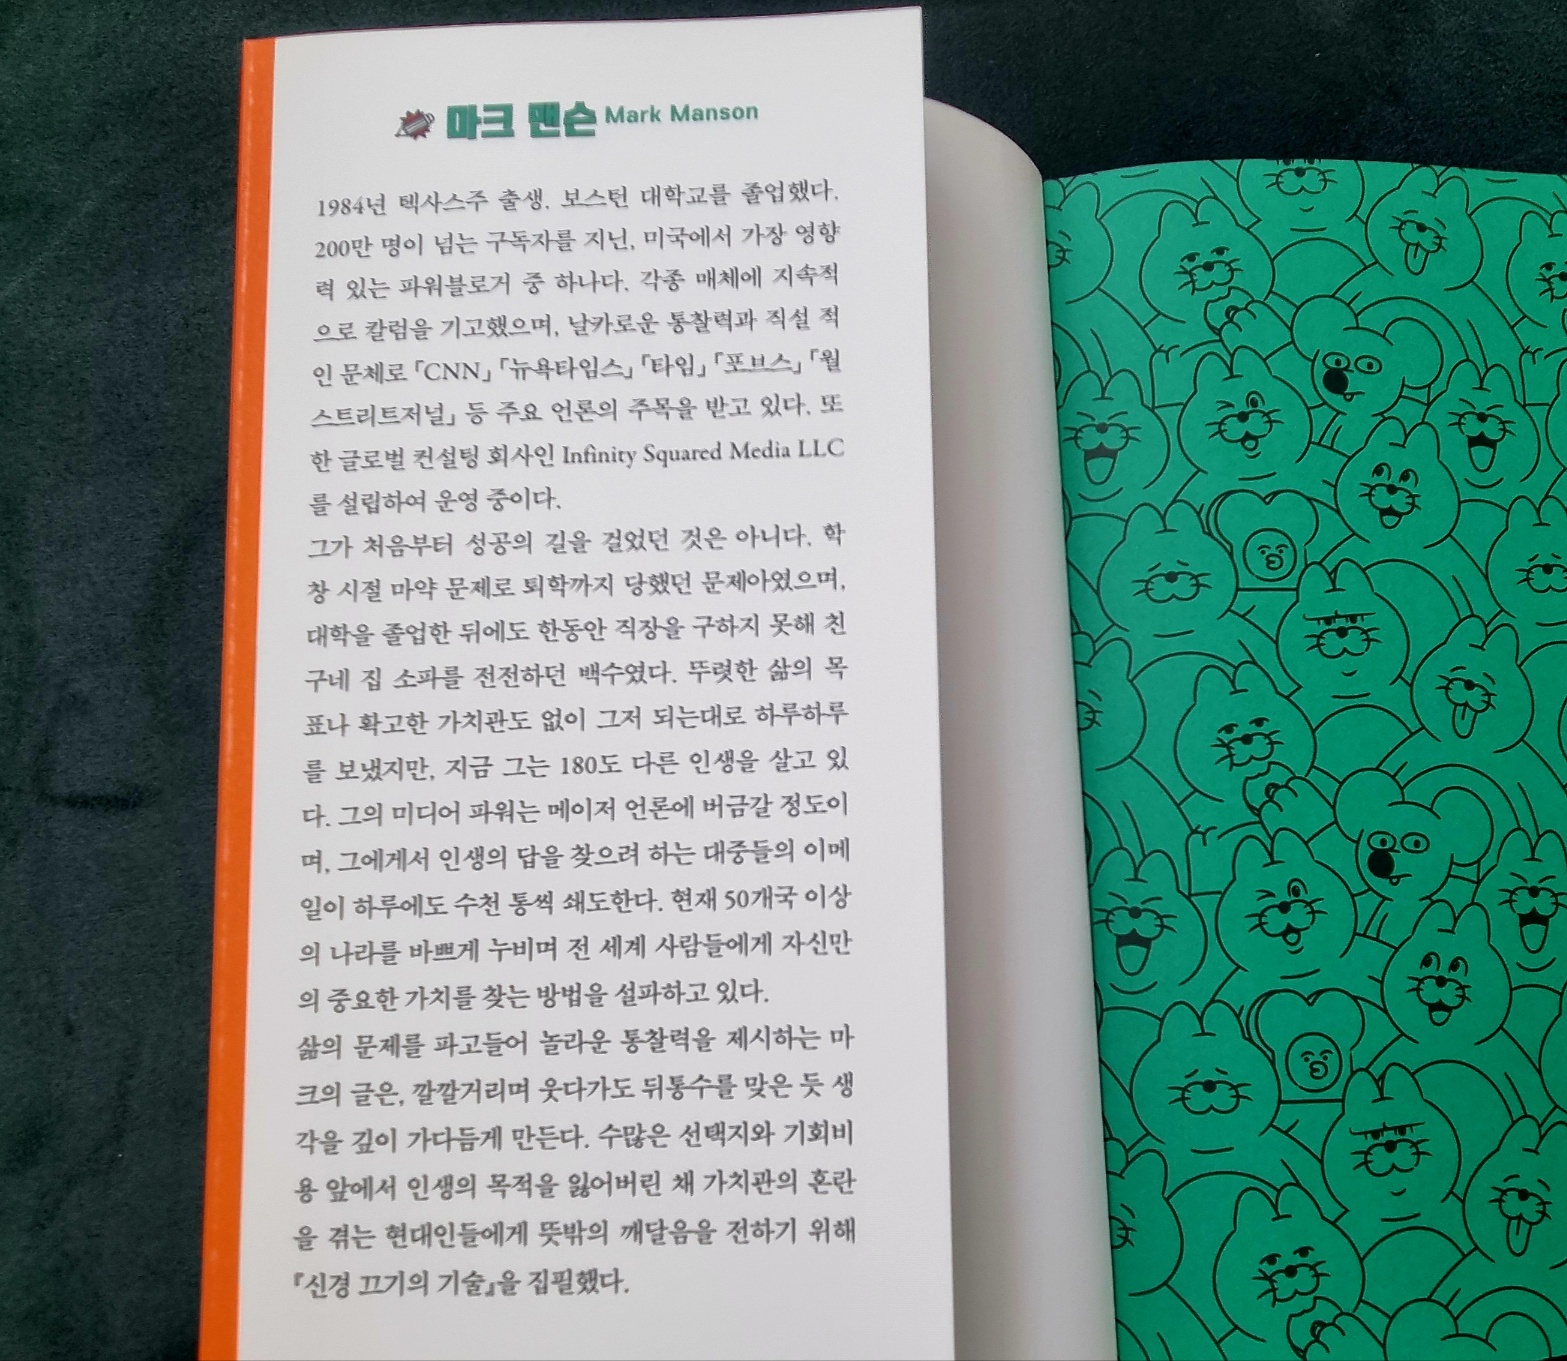 마크 맨슨 Mark Manson
1984년 텍사스주 출생. 보스턴 대학교를 졸업했다.
200만 명이 넘는 구독자를 지닌, 미국에서 가장 영향
력 있는 파워블로거 중 하나다. 각종 매체에 지속적
으로 칼럼을 기고했으며, 날카로운 통찰력과 직설 적
인 문체로 「CNN」 「뉴욕타임스」 「타임」 「포브스」 「월
스트리트저널」 등 주요 언론의 주목을 받고 있다. 또
한 글로벌 컨설팅 회사인 Infinity Squared Media LLC
를 설립하여 운영 중이다.
그가 처음부터 성공의 길을 걸었던 것은 아니다. 학
창 시절 마약 문제로 퇴학까지 당했던 문제아였으며,
대학을 졸업한 뒤에도 한동안 직장을 구하지 못해 친
구네 집 소파를 전전하던 백수였다. 뚜렷한 삶의 목
표나 확고한 가치관도 없이 그저 되는대로 하루하루
를 보냈지만, 지금 그는 180도 다른 인생을 살고 있
다. 그의 미디어 파워는 메이저 언론에 버금갈 정도이
며, 그에게서 인생의 답을 찾으려 하는 대중들의 이메
일이 하루에도 수천 통씩 쇄도한다. 현재 50개국 이상
의 나라를 바쁘게 누비며 전 세계 사람들에게 자신만
의 중요한 가치를 찾는 방법을 설파하고 있다.
삶의 문제를 파고들어 놀라운 통찰력을 제시하는 마
크의 글은, 깔깔거리며 웃다가도 뒤통수를 맞은 듯 생
각을 깊이 가다듬게 만든다. 수많은 선택지와 기회비
용 앞에서 인생의 목적을 잃어버린 채 가치관의 혼란
을 겪는 현대인들에게 뜻밖의 깨달음을 전하기 위해
『신경 끄기의 기술』을 집필했다.